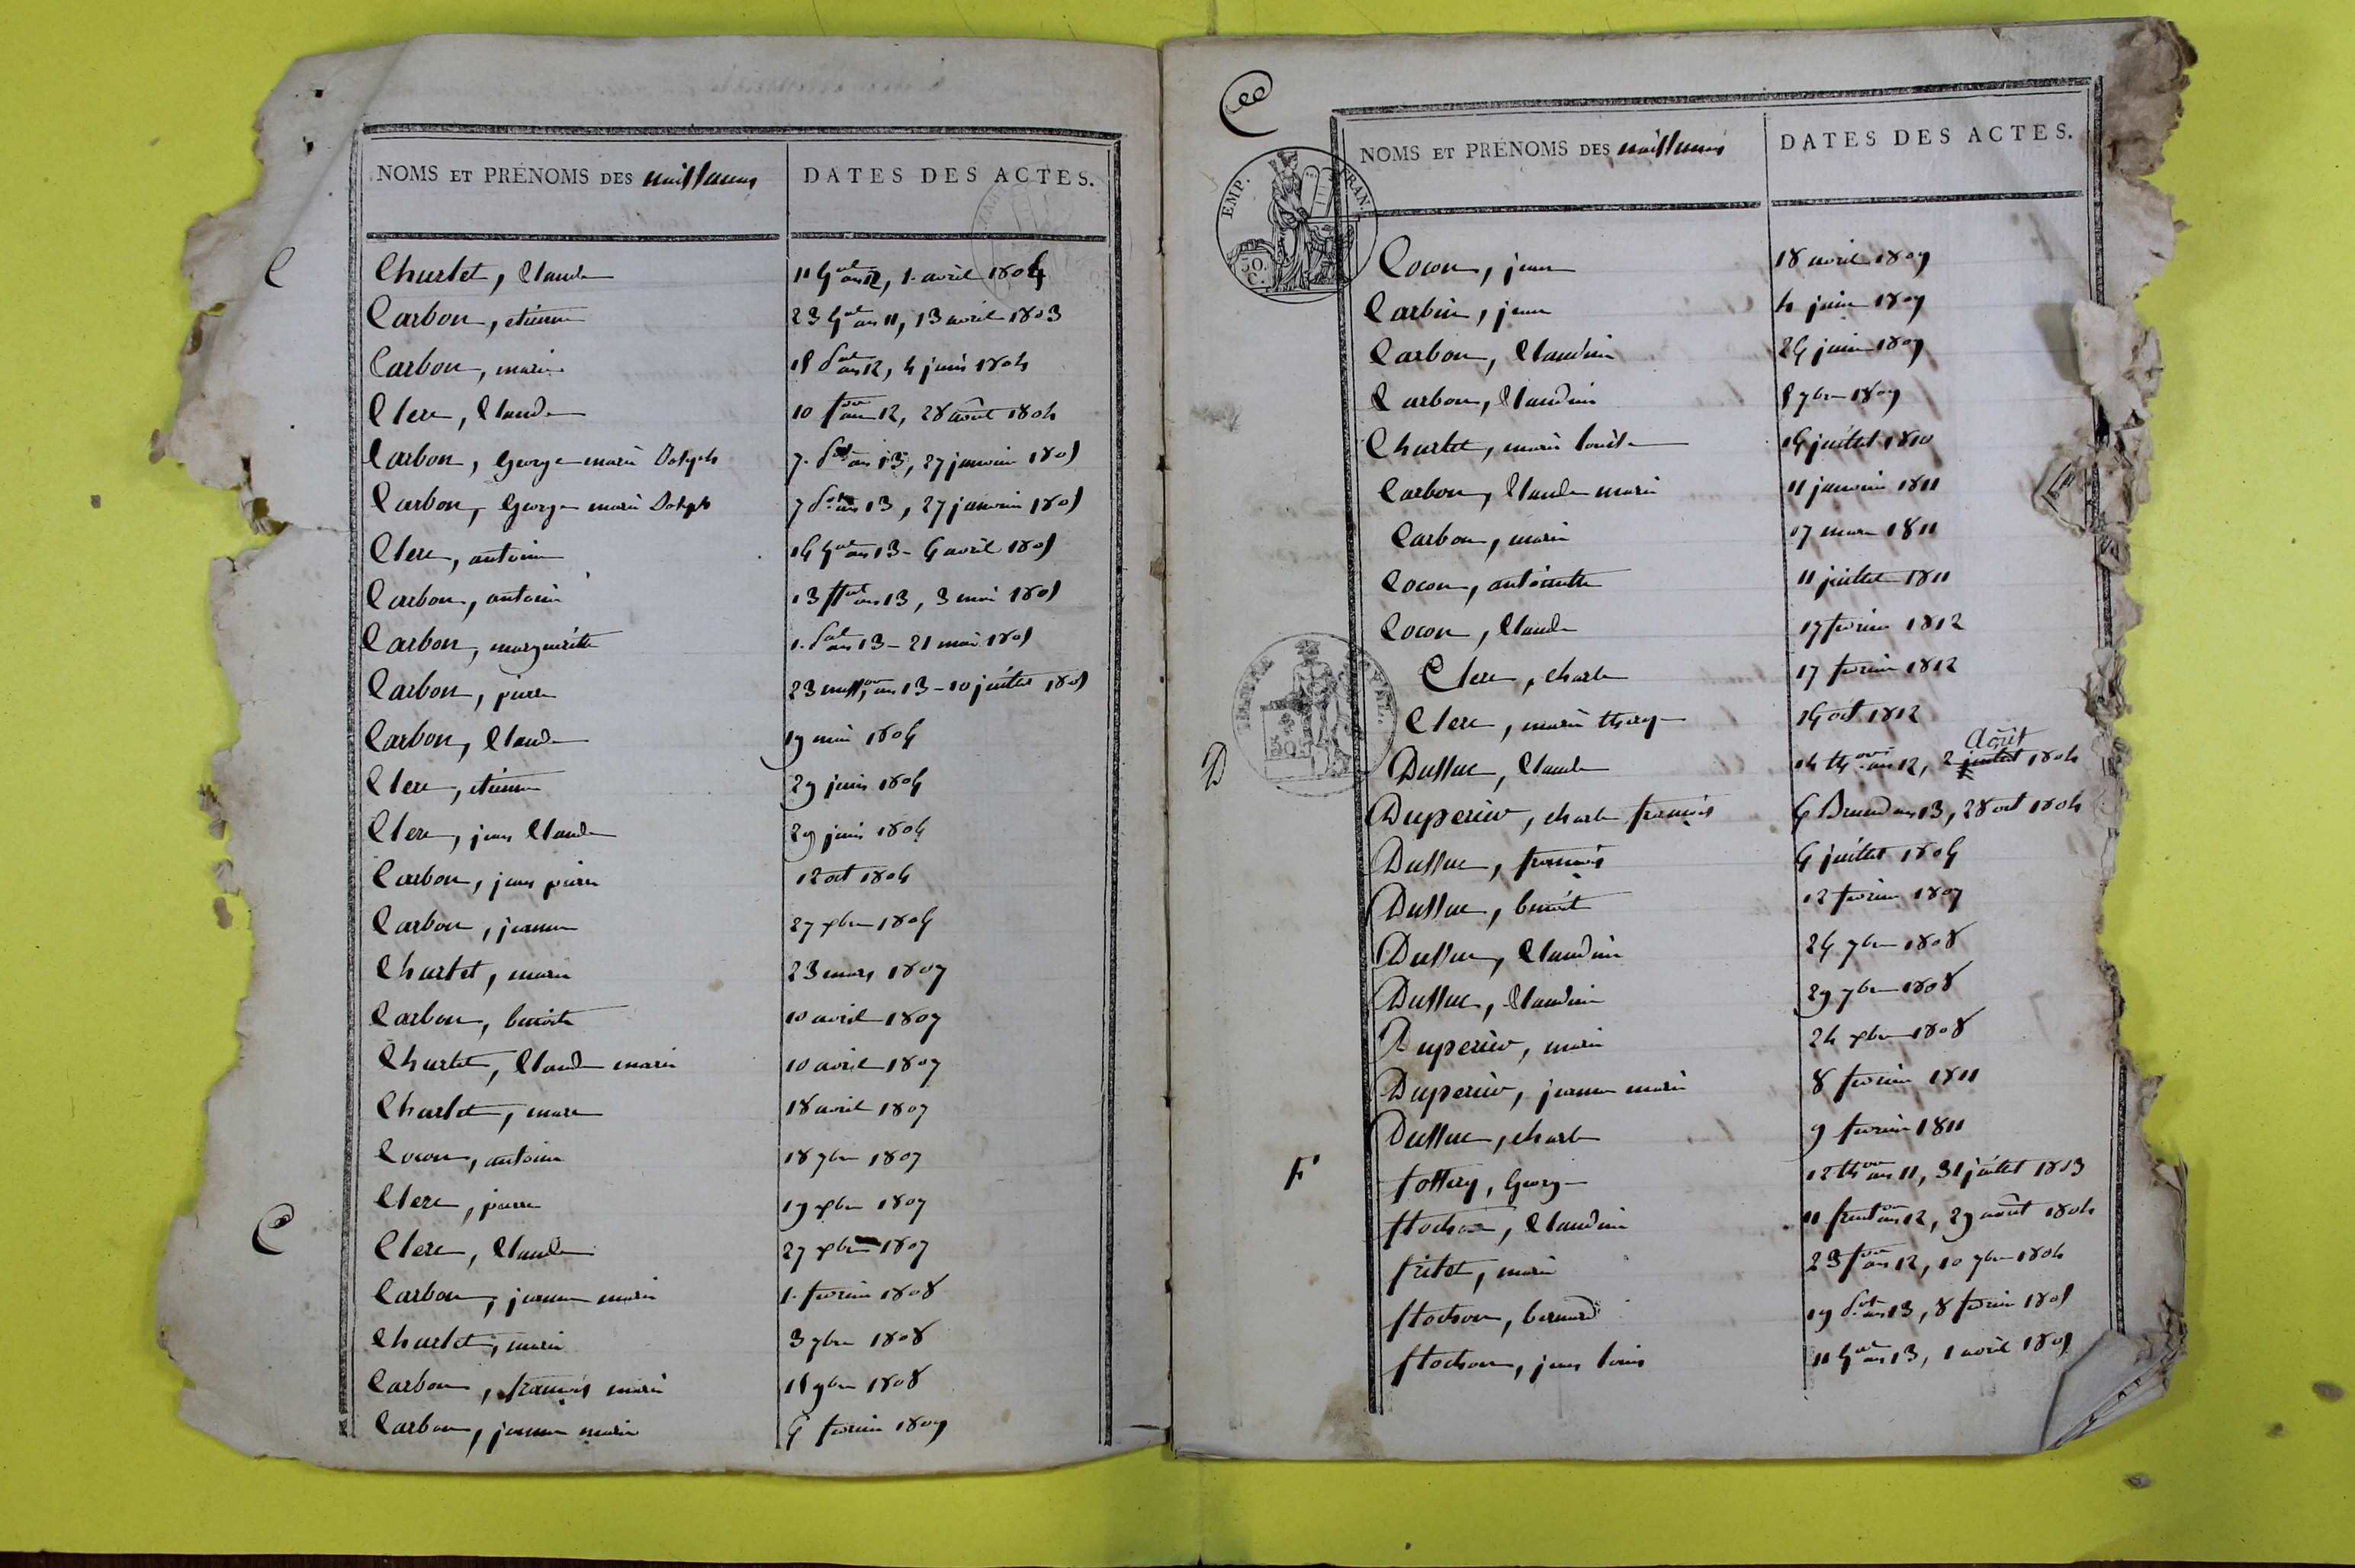 NOMS ET PRÉNOMS DES naissances
DATES DES ACTES.
C
Charlet, Claude 11 Gal an 12, 1. avril 1804
Carbon, etienne 23 Gal an 11, 13 avril 1803
Carbon, marie 15 Pal an 12, 4 juin 1804
Clere, Claude 10 for an 12, 28 août 1804
Carbon, George marie Joseph 7. an 13, 27 janvier 1805
Carbon, George marie Joseph 7 an 13, 27 janvier 1805
Clere, antoine 14 Gal an 13 - 4 avril 1805
Carbon, antoine 13 fal an 13, 3 mai 1805
Carbon, marguerite 1. Pal an 13 - 21 mai 1805
Carbon, pierre 23 an 13 - 10 juillet 1805
Carbon, Claude 19 mai 1806
Clere, etienne 29 juin 1806
Clere, jean Claude 29 juin 1806
Carbon, jean pierre 12 oct 1806
Carbon, jeanne 27 xbre 1806
Charlet, marie 23 mars 1807
Carbon, benoite 10 avril 1807
Charlet, Claude marie 10 avril 1807
Charlet, marie 18 avril 1807
Cocon, antoine 18 7bre 1807
Clere, pierre 19 xbre 1807
C
Clere, Claude 27 xbre 1807
Carbon, jeanne marie 1. fevrier 1808
Charlet, marie 3 7bre 1808
Carbon, françois marie 15 9bre 1808
Carbon, jeanne marie 6 fevrier 1809
C
NOMS ET PRÉNOMS DES naissances
DATES DES ACTES.
EMP. FRAN.
50.
C.
Cocon, jean 18 avril 1809
Carbon, jean 4 juin 1809
Carbon, Claudine 26 juin 1809
Carbon, Claudine 5 7bre 1809
Charlet, marie louise 16 juillet 1810
Carbon, Claude marie 11 janvier 1811
Carbon, marie 17 mars 1811
Cocon, antoinette 11 juillet 1811
Cocon, Claude 17 fevrier 1812
Clere, charle 17 fevrier 1812
Clere, marie 16 oct 1812
août
D
Dussuc, Claude 14 an 12, 2 juillet 1804
Duperier, charle françois 6 Brum an 13, 28 oct 1804
Dussuc, françois 6 juillet 1806
Dussuc, benoit 12 fevrier 1807
Dussuc, Claudine 26 7bre 1808
Dussuc, Claudine 29 7bre 1808
Duperier, marie 24 xbre 1808
Duperier, jeanne marie 8 fevrier 1811
Dussuc, charle 9 fevrier 1811
F
George 12 an 11, 31 juillet 1803
flochon, Claudine 11 fruct an 12, 29 août 1804
marie 23 for an 12, 10 7bre 1804
flochon, bernard 19 an 13, 8 fevrier 1805
flochon, jean louis 11 Gal an 13, 1 avril 1805